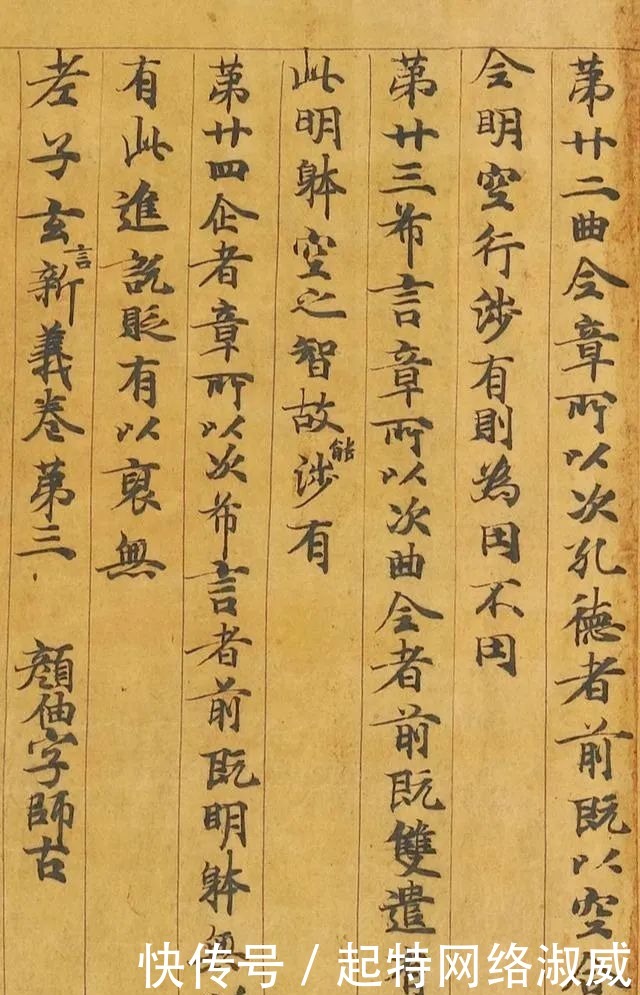 第廿二曲全章所以次孔德者前既以空
今明空行涉有則為因不因
第廿三希言章所以次曲全者前既雙遣有
此明躰空之智故能涉有
第廿四企者章所以次希言者前既明躰無
有此進説貶有以裒無
老子玄言新義卷第三 顏伷字師古
快传号/起特网络淑威